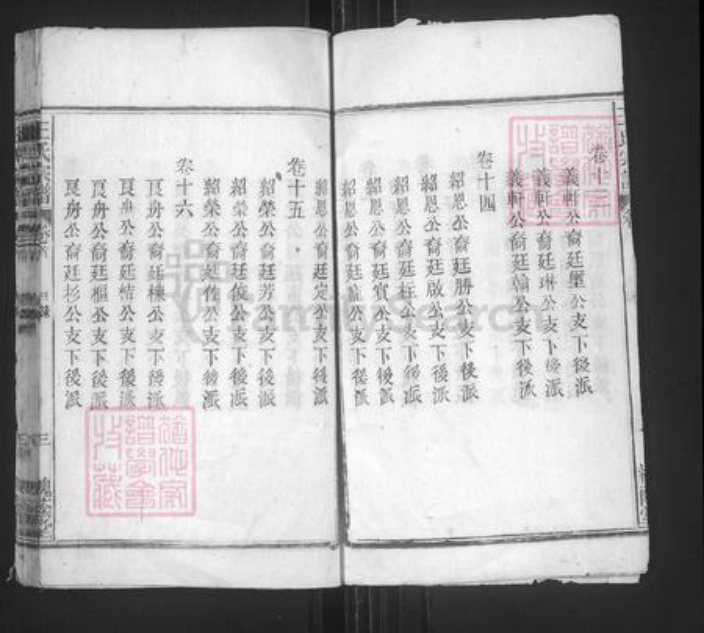 卷十
義軒公裔廷璽公支下後派
義軒公裔廷琳公支下後派
義軒公裔廷翰公支下後派
卷十四
紹恩公裔廷勝公支下後派
紹恩公裔廷啟公支下後派
紹恩公裔廷 公支下後派
紹恩公裔廷寳公支下後派
紹恩公裔廷 公支下後派
紹恩公裔廷定公支下後派
卷十五
紹榮公裔廷芳公支下後派
紹榮公裔廷俊公支下後派
紹榮公裔廷 公支下後派
卷十六
艮舟公裔廷棟公支下後派
艮舟公裔廷 公支下後派
艮舟公裔廷樞公支下後派
艮舟公裔廷杉公支下後派
王氏宗譜
目錄
三
槐蔭堂
FamilySearch